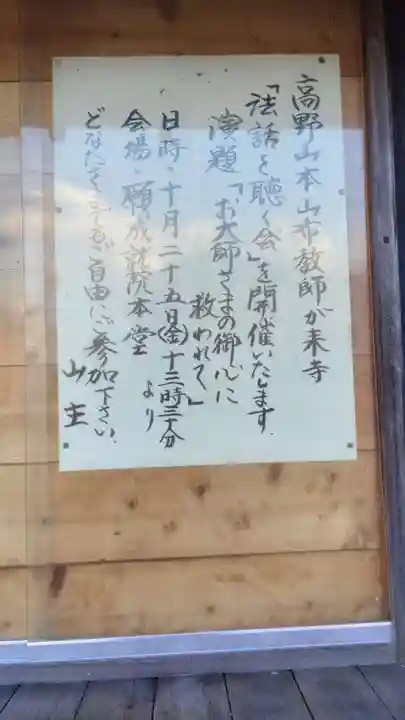 高野山本山布教師が来寺
「法話を聴く会」を開催いたします.
演題「お大師さまの御心に
救われて」
日時、十月二十五日(金)十三時三十分
より
会場、願成就院本堂
どなたさまでもご自由にご参加下さい、
山主